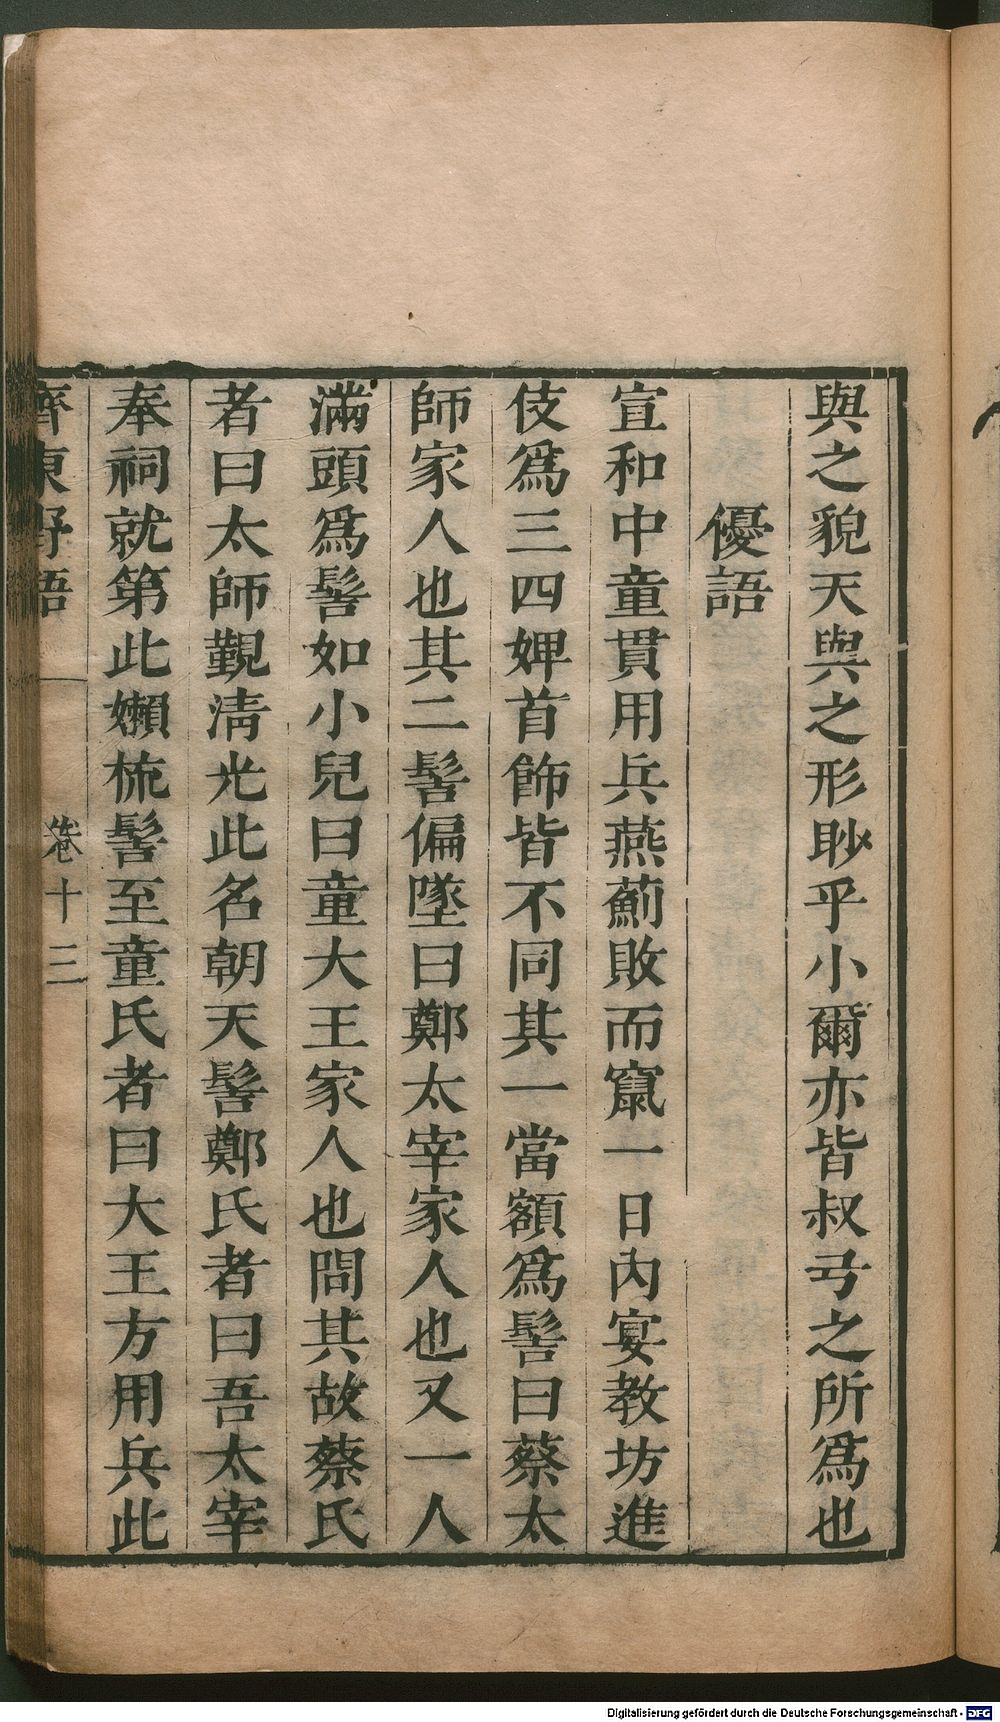 與之貌天與之形眇乎小爾亦皆叔弓之所爲也
優語
宣和中童貫用兵燕薊敗而竄一日內宴教坊進
伎爲三四婢首飾皆不同其一當額爲髻曰蔡太
師家人也其二髻偏墜曰鄭太宰家人也又一人
滿頭爲髻如小兒曰童大王家人也問其故蔡氏
者曰太師觐淸光此名朝天髻鄭氏者曰吾太宰
奉祠就第此嬾梳髻至童氏者曰大王方用兵此
齊東野語 卷十三
Digitalisierung gefördert durch die Deutsche Forschungsgemeinschaft - DFG